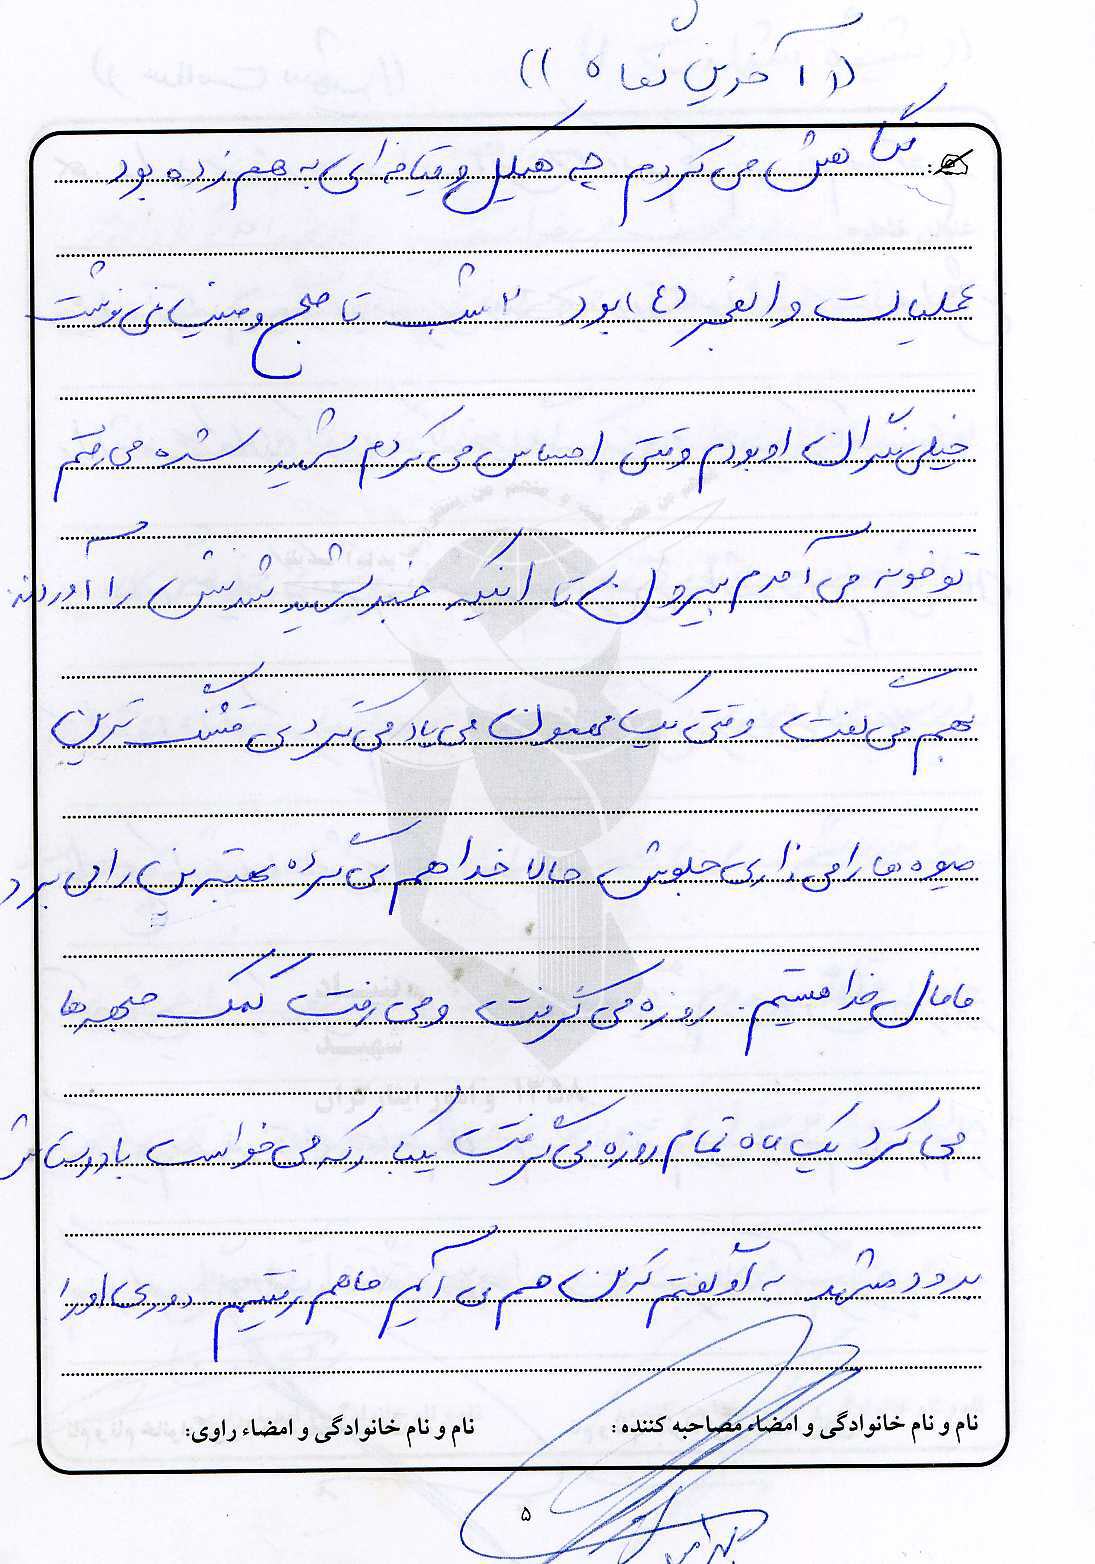 (( آخرین نگاه ))
نگاهش می کردم چه هیکل و قیافه ای به هم زده بود
عملیات والفجر (٤) بود ٢ شب تا صبح وصیت می نوشت
خیلی نگران او بودم وقتی احساس می کردم شهید شده می رفتم
تو خونه می آمدم بیرون تا اینکه خبر شهید شدنش را آوردند
بهم می گفت وقتی یک مهمون می یاد می گردی قشنگ ترین
میوه ها را می ذاری جلوش حالا خدا هم می گرده بهترین را می برد
ما مال خدا هستیم. روزه می گرفت و می رفت کمک جبهه ها
می کرد یک ماه تمام روزه می گرفت یکبار که می خواست با دوستاش
برود مشهد به او گفتم که من هم می آیم ما هم رفتیم دوری او را
نام و نام خانوادگی و امضاء مصاحبه کننده :
نام و نام خانوادگی و امضاء راوی:
۵